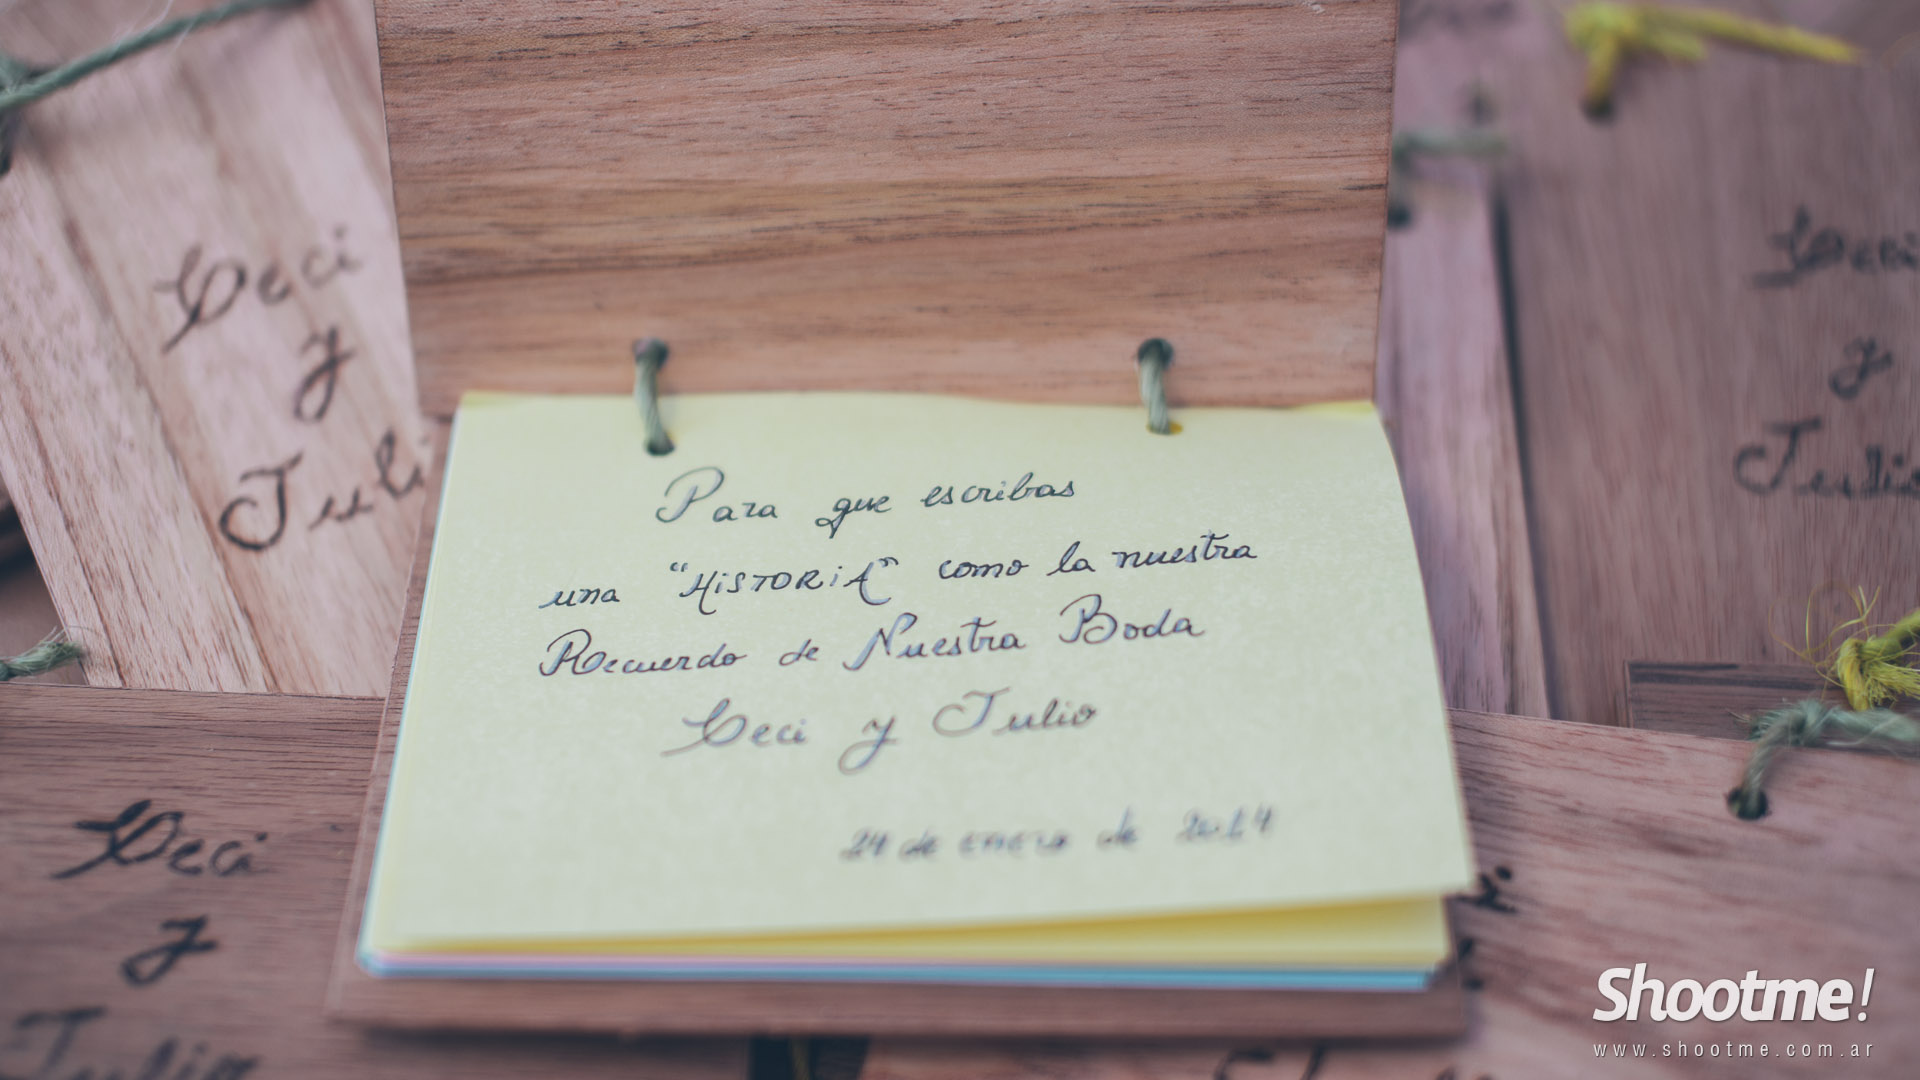 Ceci
y
Juli
Para que escribas
una "HiSTORiA" como la nuestra
Recuerdo de Nuestra Boda
Ceci y Julio
24 de enero de 2014
Ceci
y
Julio
Ceci
y
Julio
Shootme!
www.shootme.com.ar